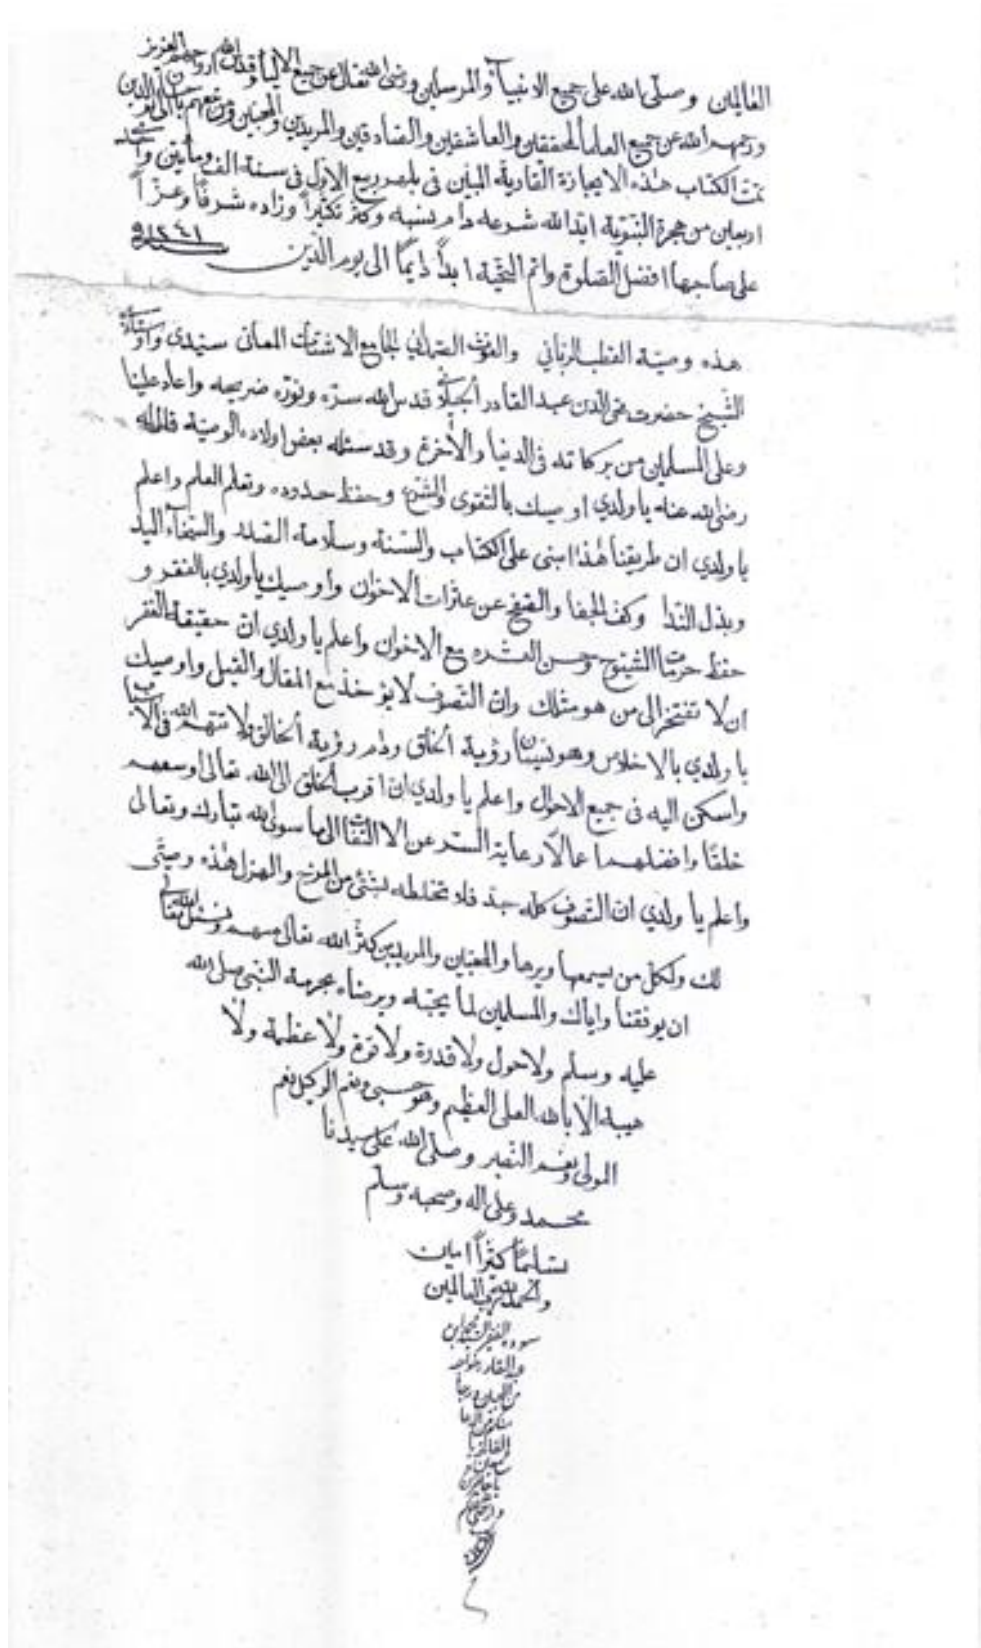 العالمين وصلى الله على جميع الانبيآء والمرسلين ورضى الله تعالى عن جميع الاوليآء وقدس الله ارواحهم العزيز
ورحمهم الله عن جميع العلمآء المحققين والعاشقين والصادقين والمريدين والمحبين ومن تبعهم الى يوم الدين
تمت الكتاب هذه الايجازة القادرية المبين فى شهر ربيع الاول فى سنة الف ومأيتين واحد
اربعين من هجرة النبوية ابد الله شرعه دام بسنبه وكثر تكثيراً وزاده شرفاً وعزاً
على صاحبها افضل الصلوة واتم التحية ابداً دايماً الى يوم الدين ١٢٤١
هذه وصية القطب الربانى والغوث الصمدانى الجامع الاشتات المعانى سيدى واوستاد
الشيخ حضرت محى الدين عبد القادر الجيلى قدس الله سره ونوره ضريحه واعاد علينا
وعلى المسلمين من بركاته فى الدنيا والأخرة وقد سئله بعض اولاده الوصية قال له
رضى الله عنه يا ولدي اوصيك بالتقوى والشرع وحفظ حدوده وتعلم العلم واعلم
يا ولدي ان طريقنا هذا مبنى على الكتاب والسنة وسلامة الصدر والسخآء اليد
وبذل الندا وكف الجفا والصفح عن عثرات الاخوان واوصيك يا ولدي بالفقر و
حفظ حرمات الشيوخ وحسن العشره مع الاخوان واعلم يا ولدي ان حقيقة الفقر
ان لا تفتخر الى من هو مثلك وان التصوف لا يؤخذ مع المقال والقيل واوصيك
يا ولدي بالاخلاص وهو نسيان رؤية الخلق ودام رؤية الخالق ولا تتهم الله فى الاسباب
واسكن اليه فى جميع الاحوال واعلم يا ولدي ان اقرب الخلق الى الله تعالى اوسعهم
خلقاً وافضلهم اعمالا رعاية الستر عن الالتفات الى ما سوى الله تبارك وتعالى
واعلم يا ولدي ان التصوف كله جد فلا تخلطه بشئ من المزح والهزل هذه وصيتى
لك ولكل من يسمعها ويرها والمحبين والمريدين كثر الله تعالى منهم ونسئل الله تعالى
ان يوفقنا واياك والمسلمين لما يحبه ويرضاه بحرمة النبى صلى الله
عليه وسلم ولا حول ولا قدرة ولا قوة ولا عظمة ولا
هيبة الا بالله العلى العظيم وهو حسبى ونعم الوكيل نعم
المولى ونعم النصير وصلى الله على سيدنا
محمد وعلى اله وصحبه وسلم
تسليماً كثيراً امين
والحمد لله رب العالمين